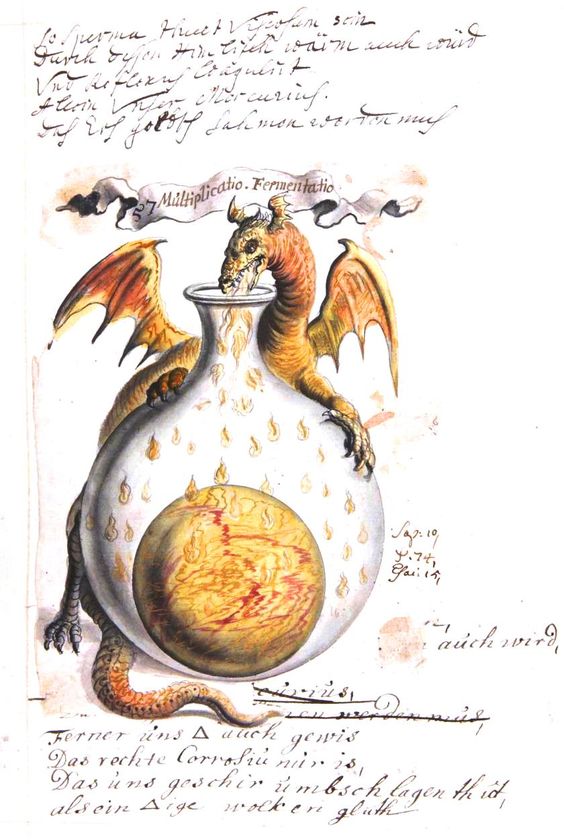 So Sperma thuet Viscosem sein
Durch dessen Him lisch wärm auch würd
Vnd Reflexus Coagulirt
Allein Vnser Mercurius.
Das Ers Saamen werden mus
57 Multiplicatio. Fermentatio
10
74,
15,
auch wird,
curius,
werden mus,
Ferner uns Δ auch gewis
Das rechte Corrosiv nur is,
Das uns geschir umbschlagen thüt,
als ein Δ ige wolken gluth